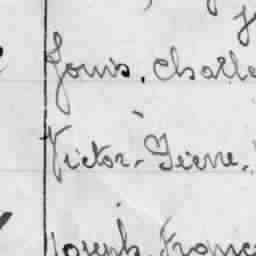 Louis. Charle
Victor. Pierre.
Joseph. Franç